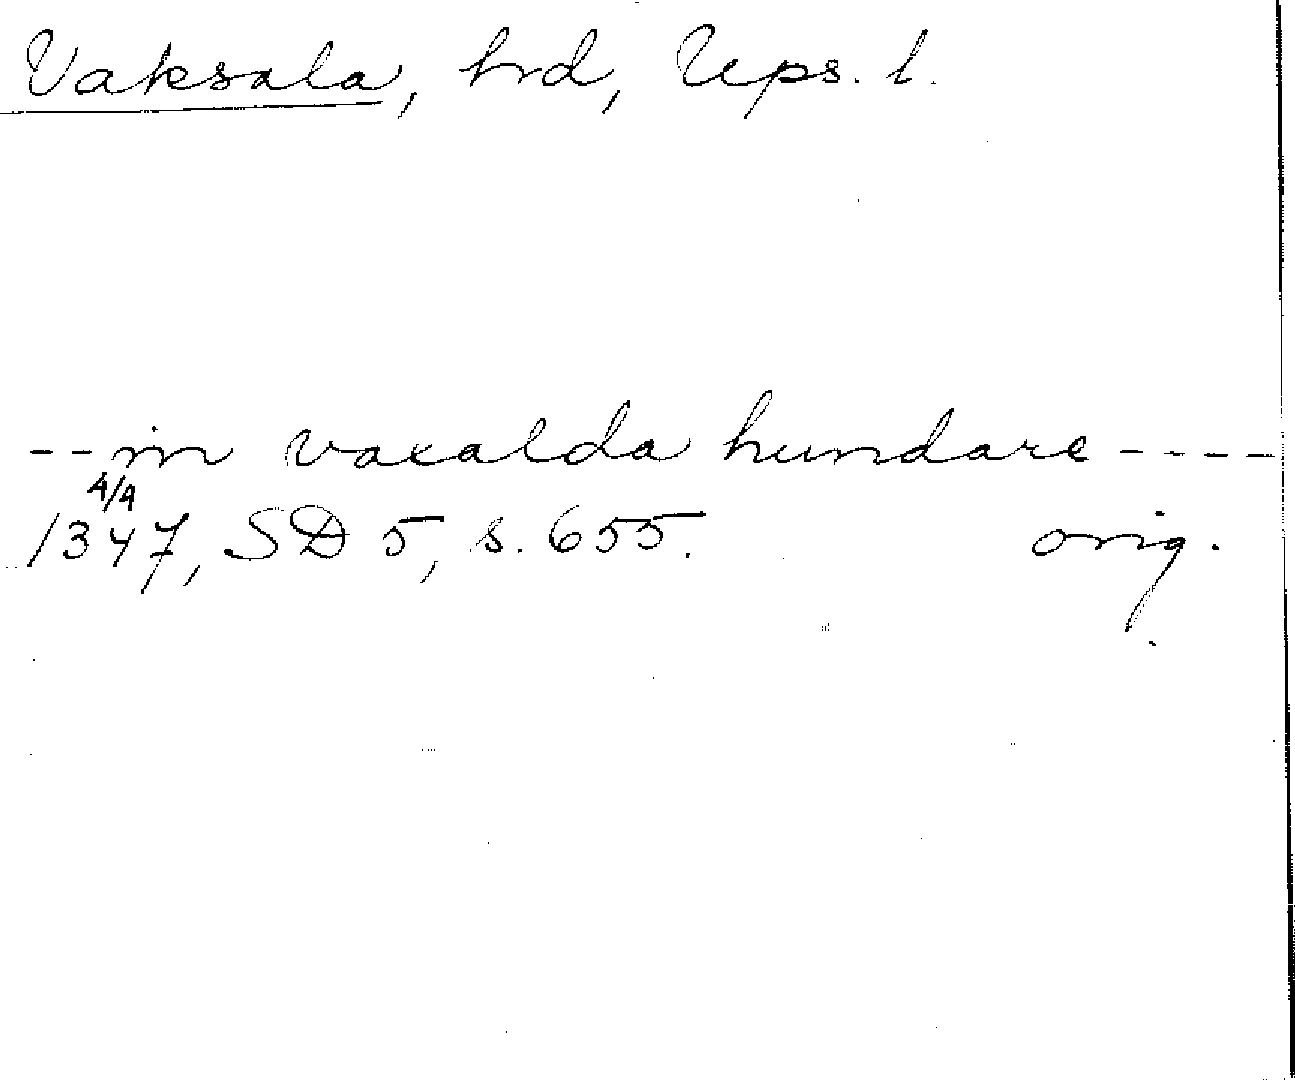 Vaksala, hrd, Ups. l.
--in vaxalda hundare----
4/4
1347, SD 5, s. 655. orig.